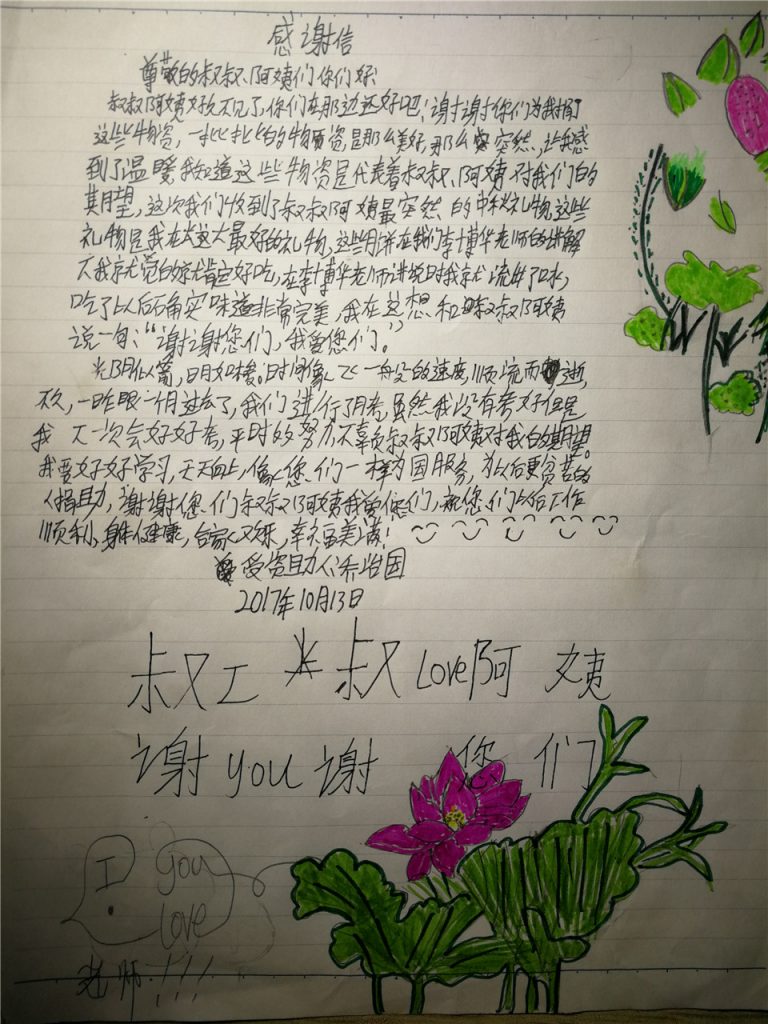 感谢信
尊敬的叔叔、阿姨们你们好:
叔叔阿姨好久不见了,你们在那边还好吧,谢谢你们为我捐
这些物资,一批批的物资是那么美好,那么突然,让我感
到了温暖,我知道这些物资是代表着叔叔、阿姨对我们的
期望,这次我们收到了叔叔阿姨最突然的中秋礼物,这些
礼物是我在长这大最好的礼物,这些月饼在我们李博华老师的讲解
下我就觉的就肯定好吃,在李博华老师讲说时我就流出了口水,
吃了以后确实味道非常完美,我在这想和叔叔阿姨
说一句:“谢谢您们,我爱您们。”
光阴似箭,日月如梭。时间像飞一般的速度,顺流而逝,
不久,一昨眼一个月过去了,我们进行了月考,虽然我没有考好但是
我下一次会好好考,平时的努力,不辜负叔叔阿姨对我的期望。
我要好好学习,天天向上,像您们一样为国服务,为以后更贫苦的
人捐助,谢谢您们叔叔阿姨我爱您们,祝您们以后工作
顺利,身体健康,合家欢乐,幸福美满!
受资助人:乔
2017年10月13日
叔又工 叔 Love阿 姨
谢 you 谢 您 们
I you
love
老师!!!